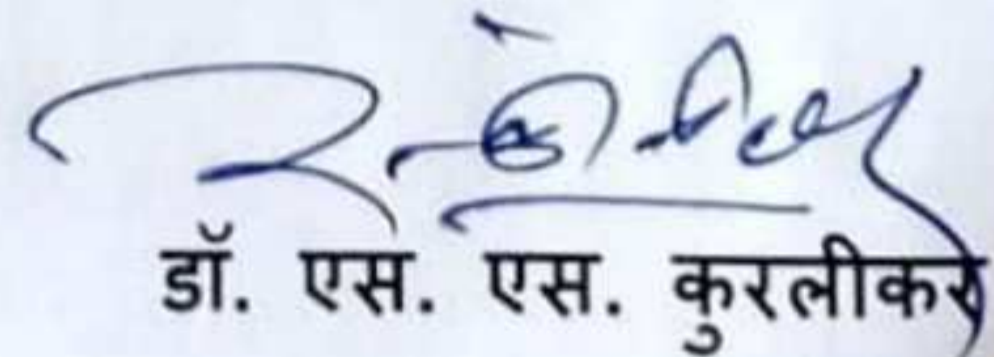 डॉ. एस. एस. कुरलीकर